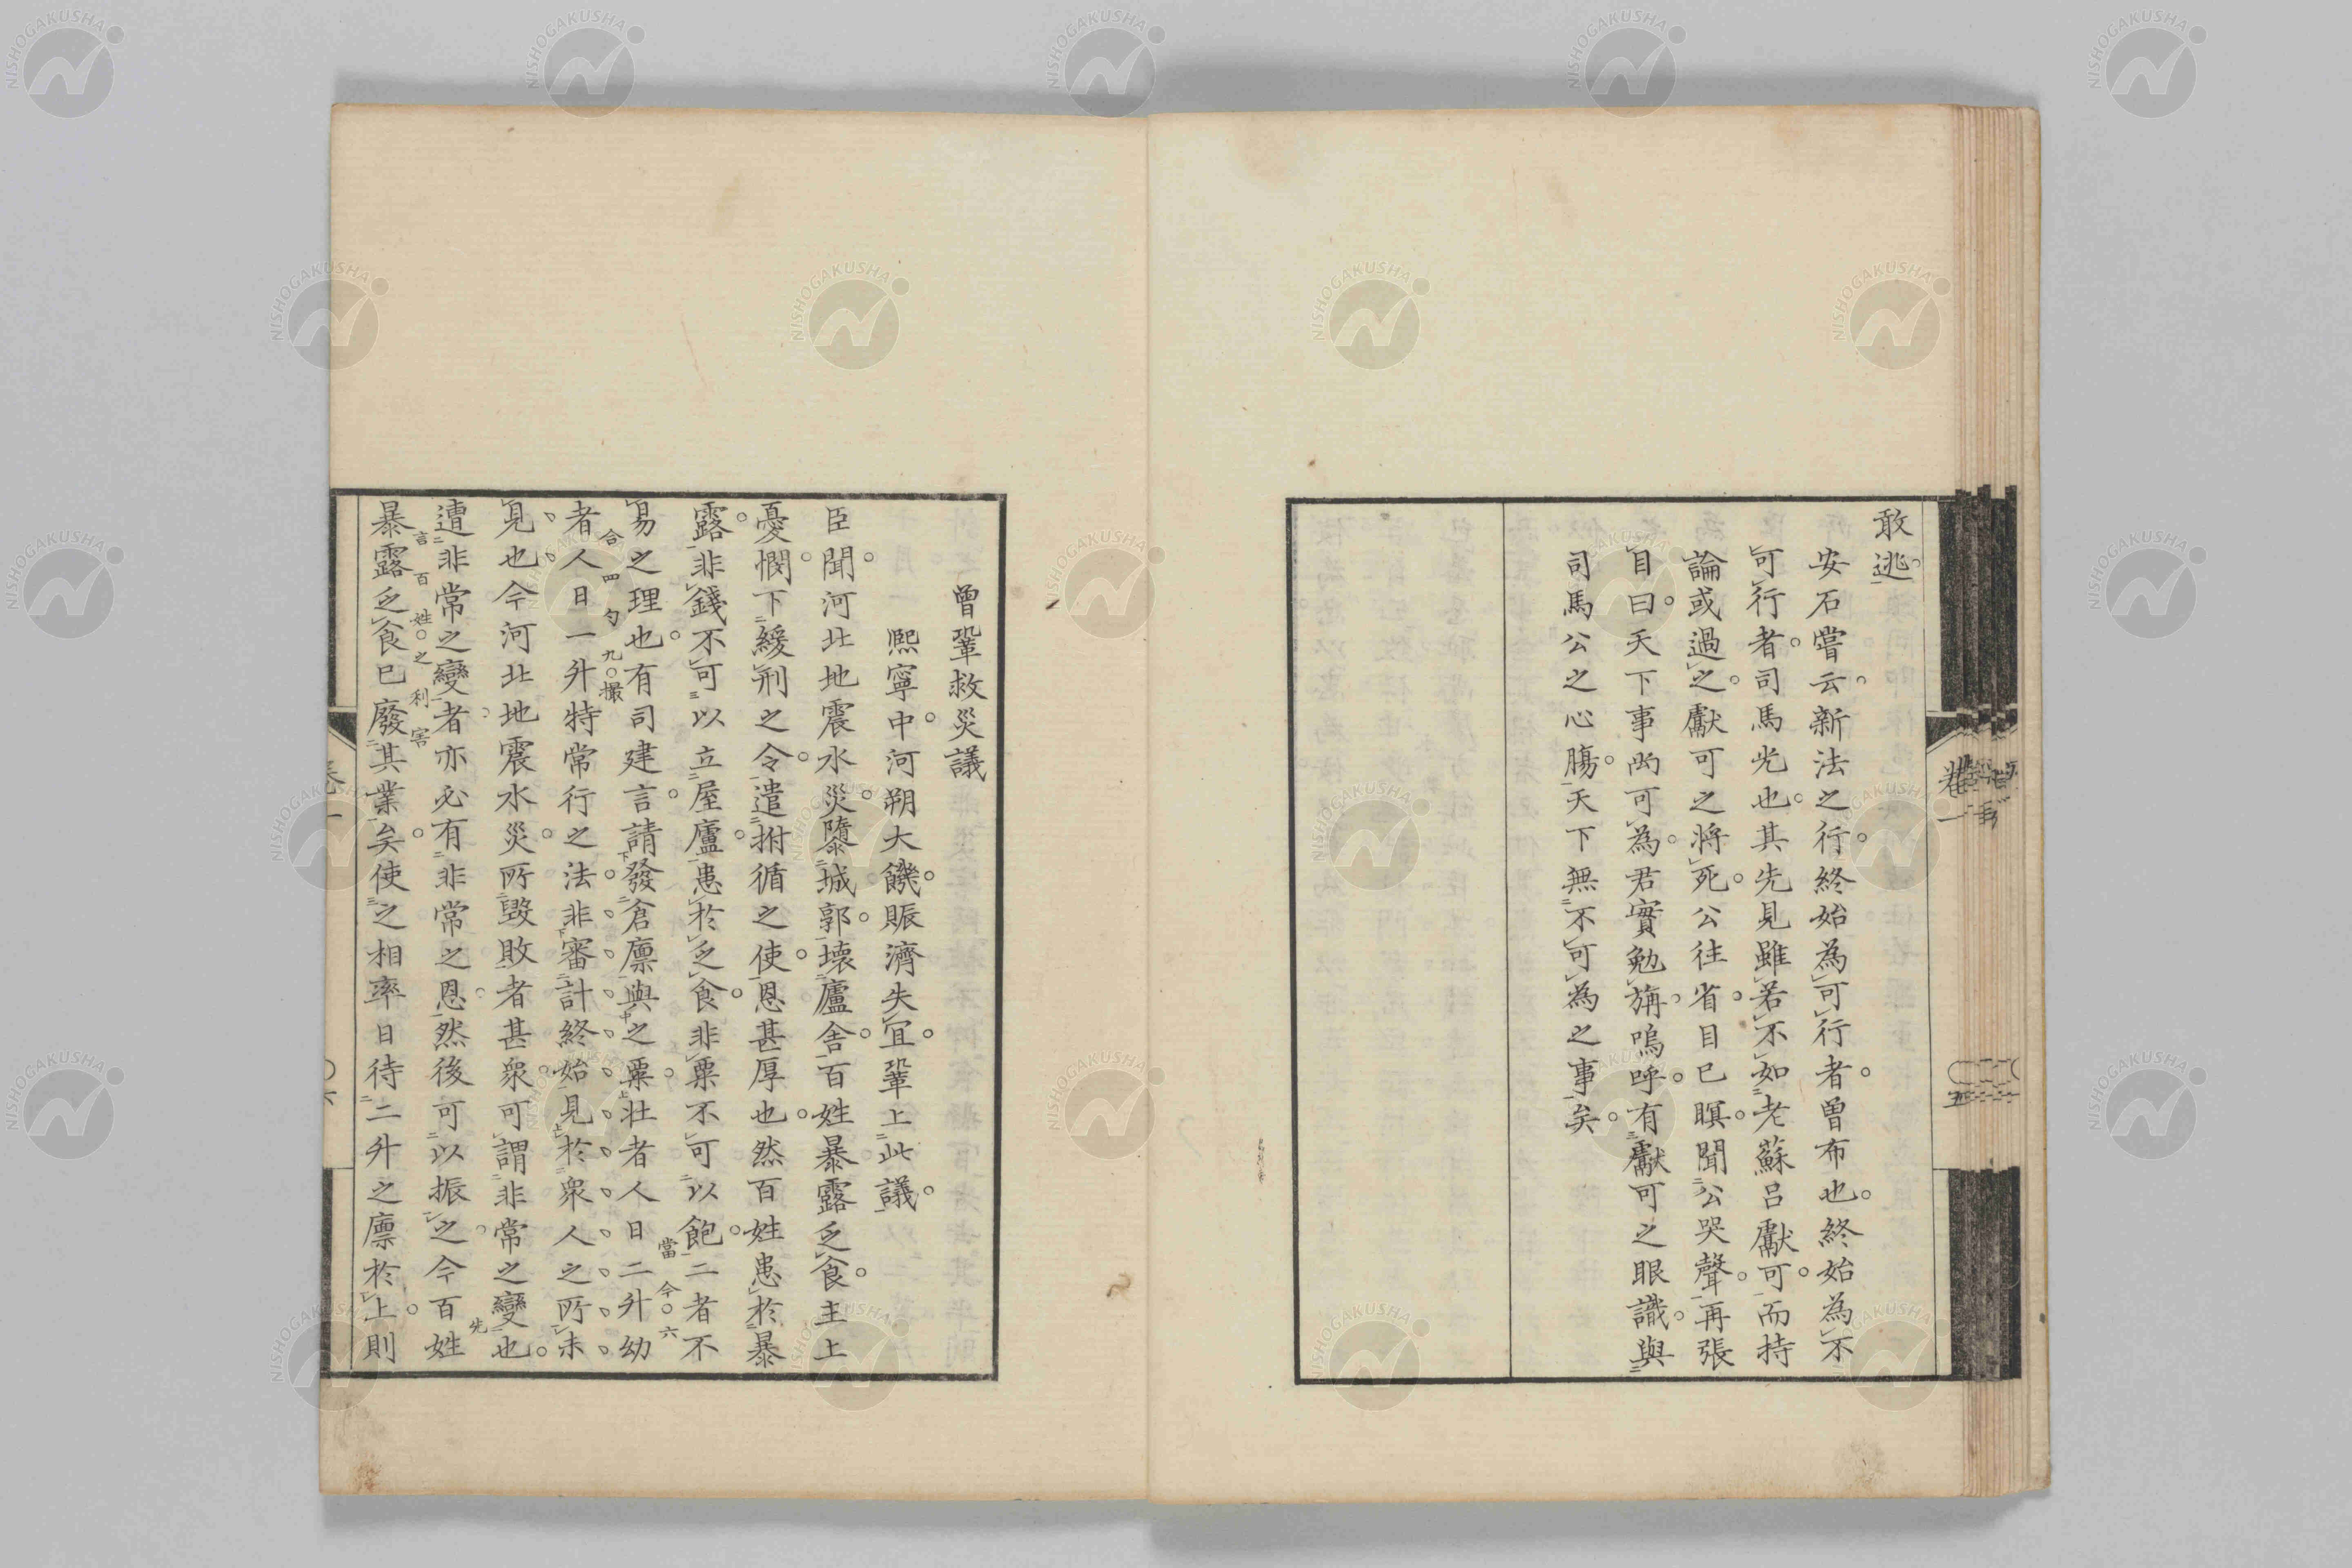 敢逃
安石嘗云新法之行終始為可行者曾布也終始為不
可行者司馬光也其先見雖若不如老蘇呂獻可而持
論或過之獻可之將死公往省目已瞑聞公哭聲再張
目曰天下事尚可為君實勉旃嗚呼有獻可之眼識與
司馬公之心膓天下無不可為之事矣
曾鞏救災議
熙寧中河朔大饑賑濟失宜鞏上此議
臣聞河北地震水災隳城郭壞廬舍百姓暴露乏食主上
憂憫下緩刑之令遣拊循之使恩甚厚也然百姓患於暴
露非錢不可以立屋廬患於乏食非粟不可以飽二者不
當今六
易之理也有司建言請發倉廩與之粟壯者人日二升幼
合四勺九撮
者人日一升特常行之法非審計終始見於衆人之所未
見也今河北地震水災所毀敗者甚衆可謂非常之變也
先
遭非常之變者亦必有非常之恩然後可以振之今百姓
言百姓之利害
暴露乏食已廢其業矣使之相率日待二升之廩於上則
NISHOGAKUSHA